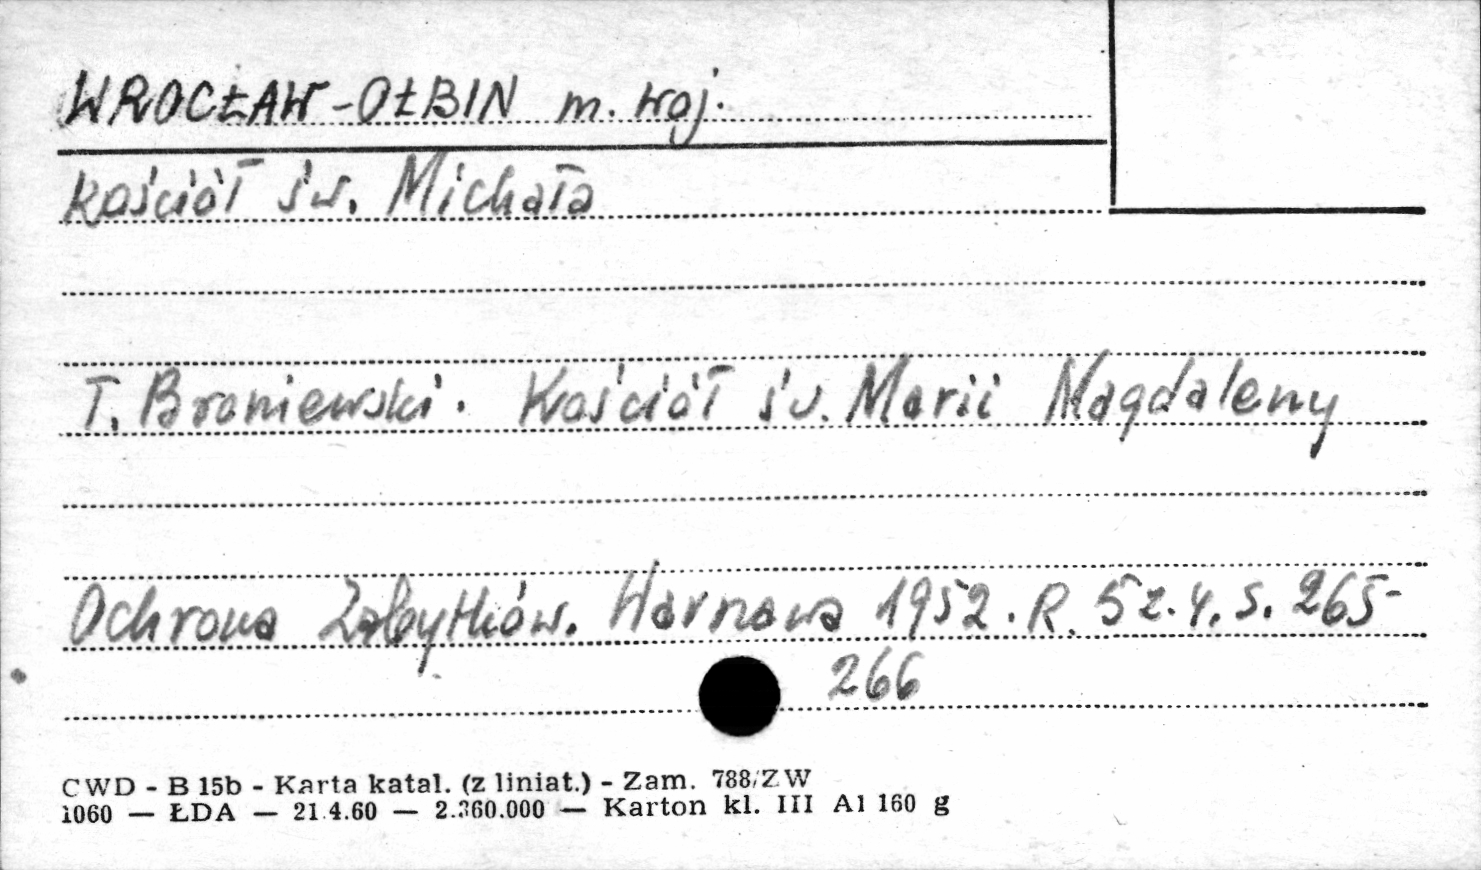 WROCŁAW-OŁBIN m. woj.
Kościół św. Michała
T. Broniewski. Kościół św. Marii Magdaleny
Ochrona Zabytków. Warszawa 1952. R. 5 z. 4. s. 265-
266
CWD - B 15b - Karta katal. (z liniat.) - Zam. 788/ZW
1060 — ŁDA — 21.4.60 — 2.360.000 — Karton kl. III A1 160 g